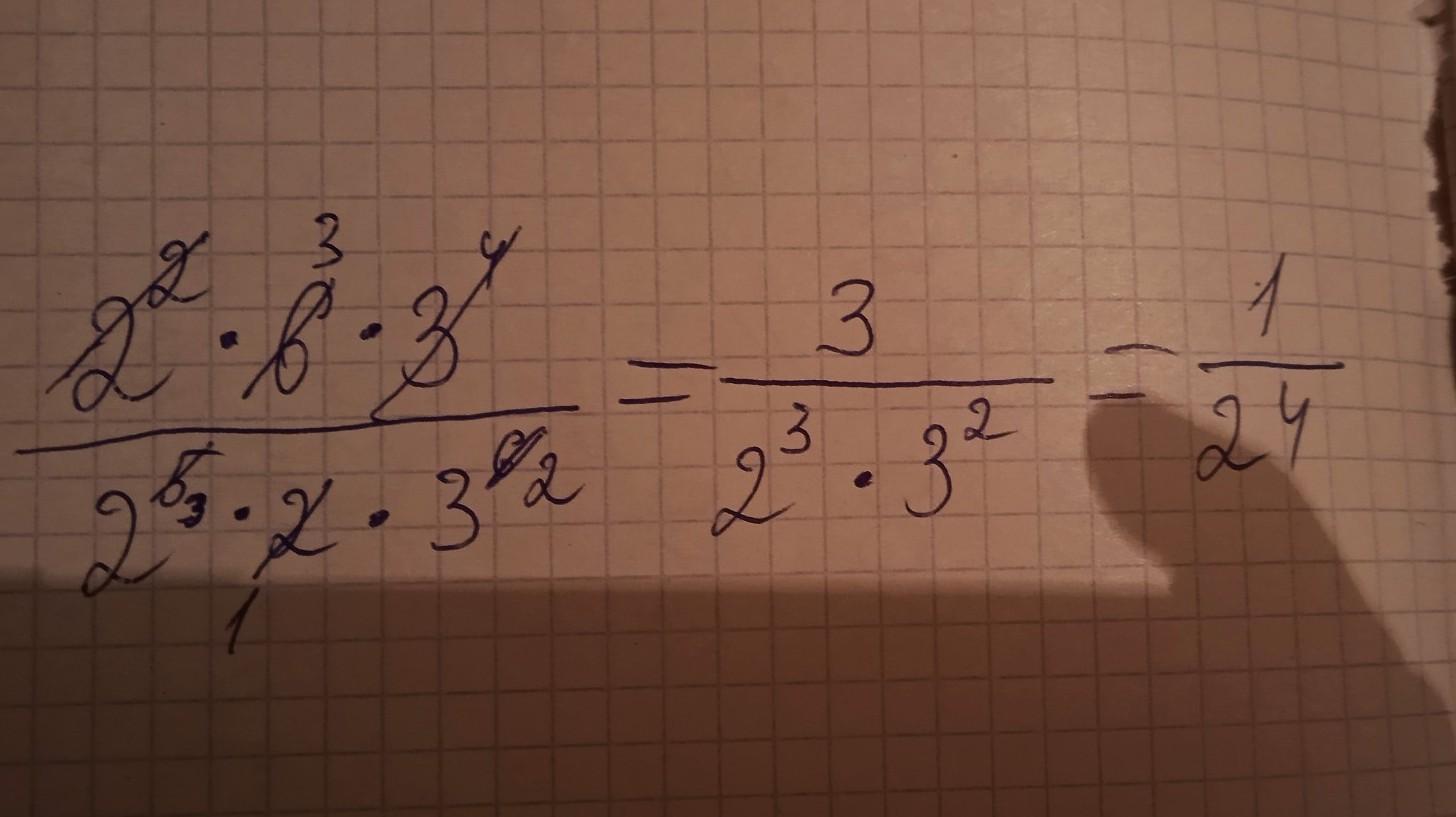 3
2² · 6 · 3⁴ / 2⁵₃ · 2 · 3⁶₂ = 3 / 2³ · 3² = 1 / 2⁴
1